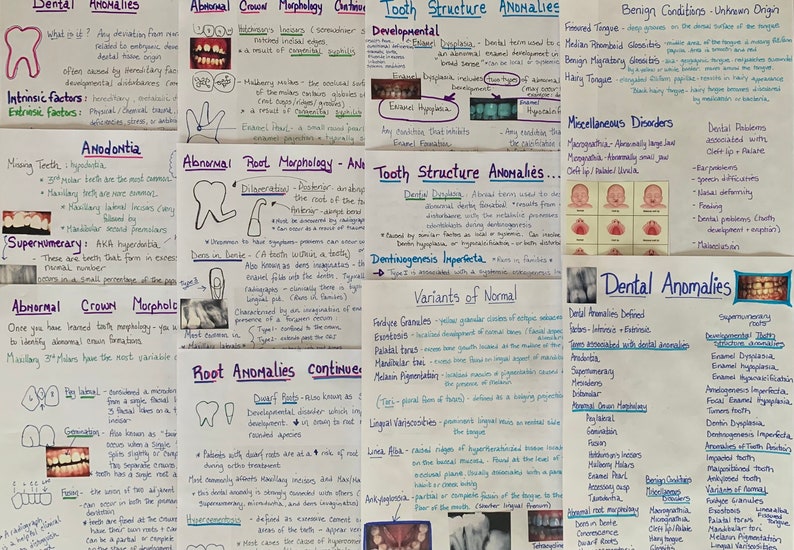 Dental Anomalies
What is it? Any deviation from nor
related to embryonic deve
dental tissue origin
often caused by hereditary fact
developmental disturbances (m
Intrinsic factors: hereditary, metabolic d
Extrinsic factors: Physical / Chemical trauma,
deficiencies, stress, or anti
Anodontia
Missing Teeth: hypodontia
* 3rd Molar teeth are the most common
* Maxillary teeth are more common
* Maxillary lateral incisors (very
followed by
* Mandibular second premolars
Supernumerary: AKA hyperdontia,
These are teeth that form in excess
normal number
occurs in a small percentage of the po
Abnormal Crown Morpholo
Once you have learned tooth morphology - you w
to identify abnormal crown formations.
Maxillary 3rd Molars have the most variable c
Peg lateral - considered a microdon
from a single facial l
3 facial lobes on a t
incisor
Gemination - Also known as "twin
occurs when a single
splits slightly or comp
Two separate crowns
* tooth has a single root a
Fusion - the union of two adjacent
can occur in both the prima
dentition
* teeth are fused at the crowns
have their own roots + can
Can be a partial or comple
in the stage of developm
A radiograph
is a helpful clinical
Abnormal Crown Morphology Continue
Hutchinson's Incisors (screwdriver s
notched incisal edges.
* a result of congenital syphilis
Mulberry Molars - the occlusal surf
of the molars contours globules of
(not cusps/ridges/grooves)
* a result of congenital syphilis
Enamel Pearl - a small round pearl
enamel projection * typically
Abnormal Root Morphology - An
Dilaceration - Posterior - an abrupt
the root of the to
Anterior - abrupt bend
* Most be discovered by radiogra
* Can occur as a result of trauma
* Uncommon to have symptoms - problems can occur w
Dens in Dente - (A tooth within a tooth)
Also known as dens invaginatus - the
Enamel folds into the dentin. Typical
radiographs - clinically there is typic
lingual pit. (Runs in families)
Type 2
Characterized by an invagination of en
presence of a foramen cecum
Type 1 - confined to the crown
Type 2 - extends past the CEJ
Most common in
Maxillary laterals
Root Anomalies Continued
Dwarf Roots - Also known as S
Developmental disorder which im
development. ↓ in crown to root
rounded apecies
* Patients with dwarf roots are at ↑ risk of root
during ortho treatment
Most commonly affects Maxillary incisors and Max/Ma
* this dental anomaly is strongly connected with others (
Supernumerary, microdontia, and dens invagination)
Hypercementosis - defined as excessive cement o
areas of the teeth - Appear rea
Most cases the cause of hypercem
Tooth Structure Anomalies
Developmental
Enamel Dysplasia - Dental term used to d
an abnormal enamel development in
"broad sense" *can be local or systemic
Enamel Dysplasia includes two types of abnormal
Development
Enamel Hypoplasia
Enamel
Hypocalcif
Any condition that inhibits
Enamel Formation
- Any condition tha
the calcification o
Tooth Structure Anomalies...
Dental Dysplasia - Abroad term used to des
abnormal dentin formation *results from
disturbance with the metabolic processes
odontoblasts during dentinogenesis
*Caused by similar factors as local or systemic. Can involve
Dentin hypoplasia, or hypocalcification - or both disturb
Dentinogenesis Imperfecta *Runs in families*
→ Type I is associated with a systemic osteogenesis i
Variants of Normal
Fordyce Granules - yellow granular clusters of ectopic sebaceo
Exostosis - localized development of cortical bones (Facial aspec
alveolar)
Palatal torus - excess bone growth located at the midline of the
Mandibular tori - excess bone found on lingual aspect of mandib
Melanin Pigmentation - localized macules of pigmentation caused
the presence of melanin
(Tori - plural form of torus) - defined as a bulging projection
Lingual Variscosities - prominent lingual veins on ventral side
the tongue
Linea Alba - raised ridges of hyperkeratinized tissue loca
on the buccal mucosa. Found at the level of
occlusal plane. Usually associated with a para
habit or cheek biting
Ankyloglossia - partial or complete fusion of the tongue to the
floor of the mouth. (Shorter lingual frenum)
Tetracycline
Benign Conditions - Unknown Origin
Fissured Tongue - deep grooves on the dorsal surface of the tongue
Median Rhomboid Glossitis - middle area of the tongue is missing filiform
papilla. Area is smooth and red
Benign Migratory Glossitis - aka - geographic tongue. red patches surrounded
by a yellow or white border - move around the tongue
Hairy Tongue - elongated filiform papillae - results in hairy appearance
"Black hairy tongue" - hairy tongue becomes discolored
by medication or bacteria.
Miscellaneous Disorders
Macrognathia - Abnormally large jaw
Micrognathia - Abnormally small jaw
Cleft lip / Palate / Uvula
Dental Problems
associated with
Cleft lip + Palate
- Ear problems
- Speech difficulties
- Nasal deformity
- Feeding
- Dental problems (tooth
development + eruption)
- Malocclusion
Dental Anomalies
Dental Anomalies Defined
Factors - Intrinsic + Extrinsic
Terms associated with dental anomalies
Anodontia,
Supernumerary
Mesiodens
Distomolar
Abnormal Crown Morphology
Peg lateral
Gemination
Fusion
Hutchinson's Incisors
Mulberry Molars
Enamel Pearl
Accessory cusp
Taurodontia
Abnormal root morphology
Dens in Dente
Concrescence
Dwarf Roots
Benign Conditions
Miscellaneous
Disorders
Macrognathia
Micrognathia
Cleft lip/Palate
Hairy Tongue
Supernumerary
roots
Developmental Tooth
Structure anomalies
Enamel Dysplasia
Enamel hypoplasia
Enamel Hypocalcification
Amelogenesis Imperfecta
Focal Enamel Hypoplasia
Turners tooth
Dentin Dysplasia
Dentinogenesis Imperfecta
Anomalies of Tooth Position
Impacted tooth
Malpositioned tooth
Ankylosed tooth
Variants of Normal
Fordyce Granules
Exostosis
Palatal torus
Mandibular tori
Melanin Pigmentation
Lingual Variscosities
Linea alba
Fissured
Tongue